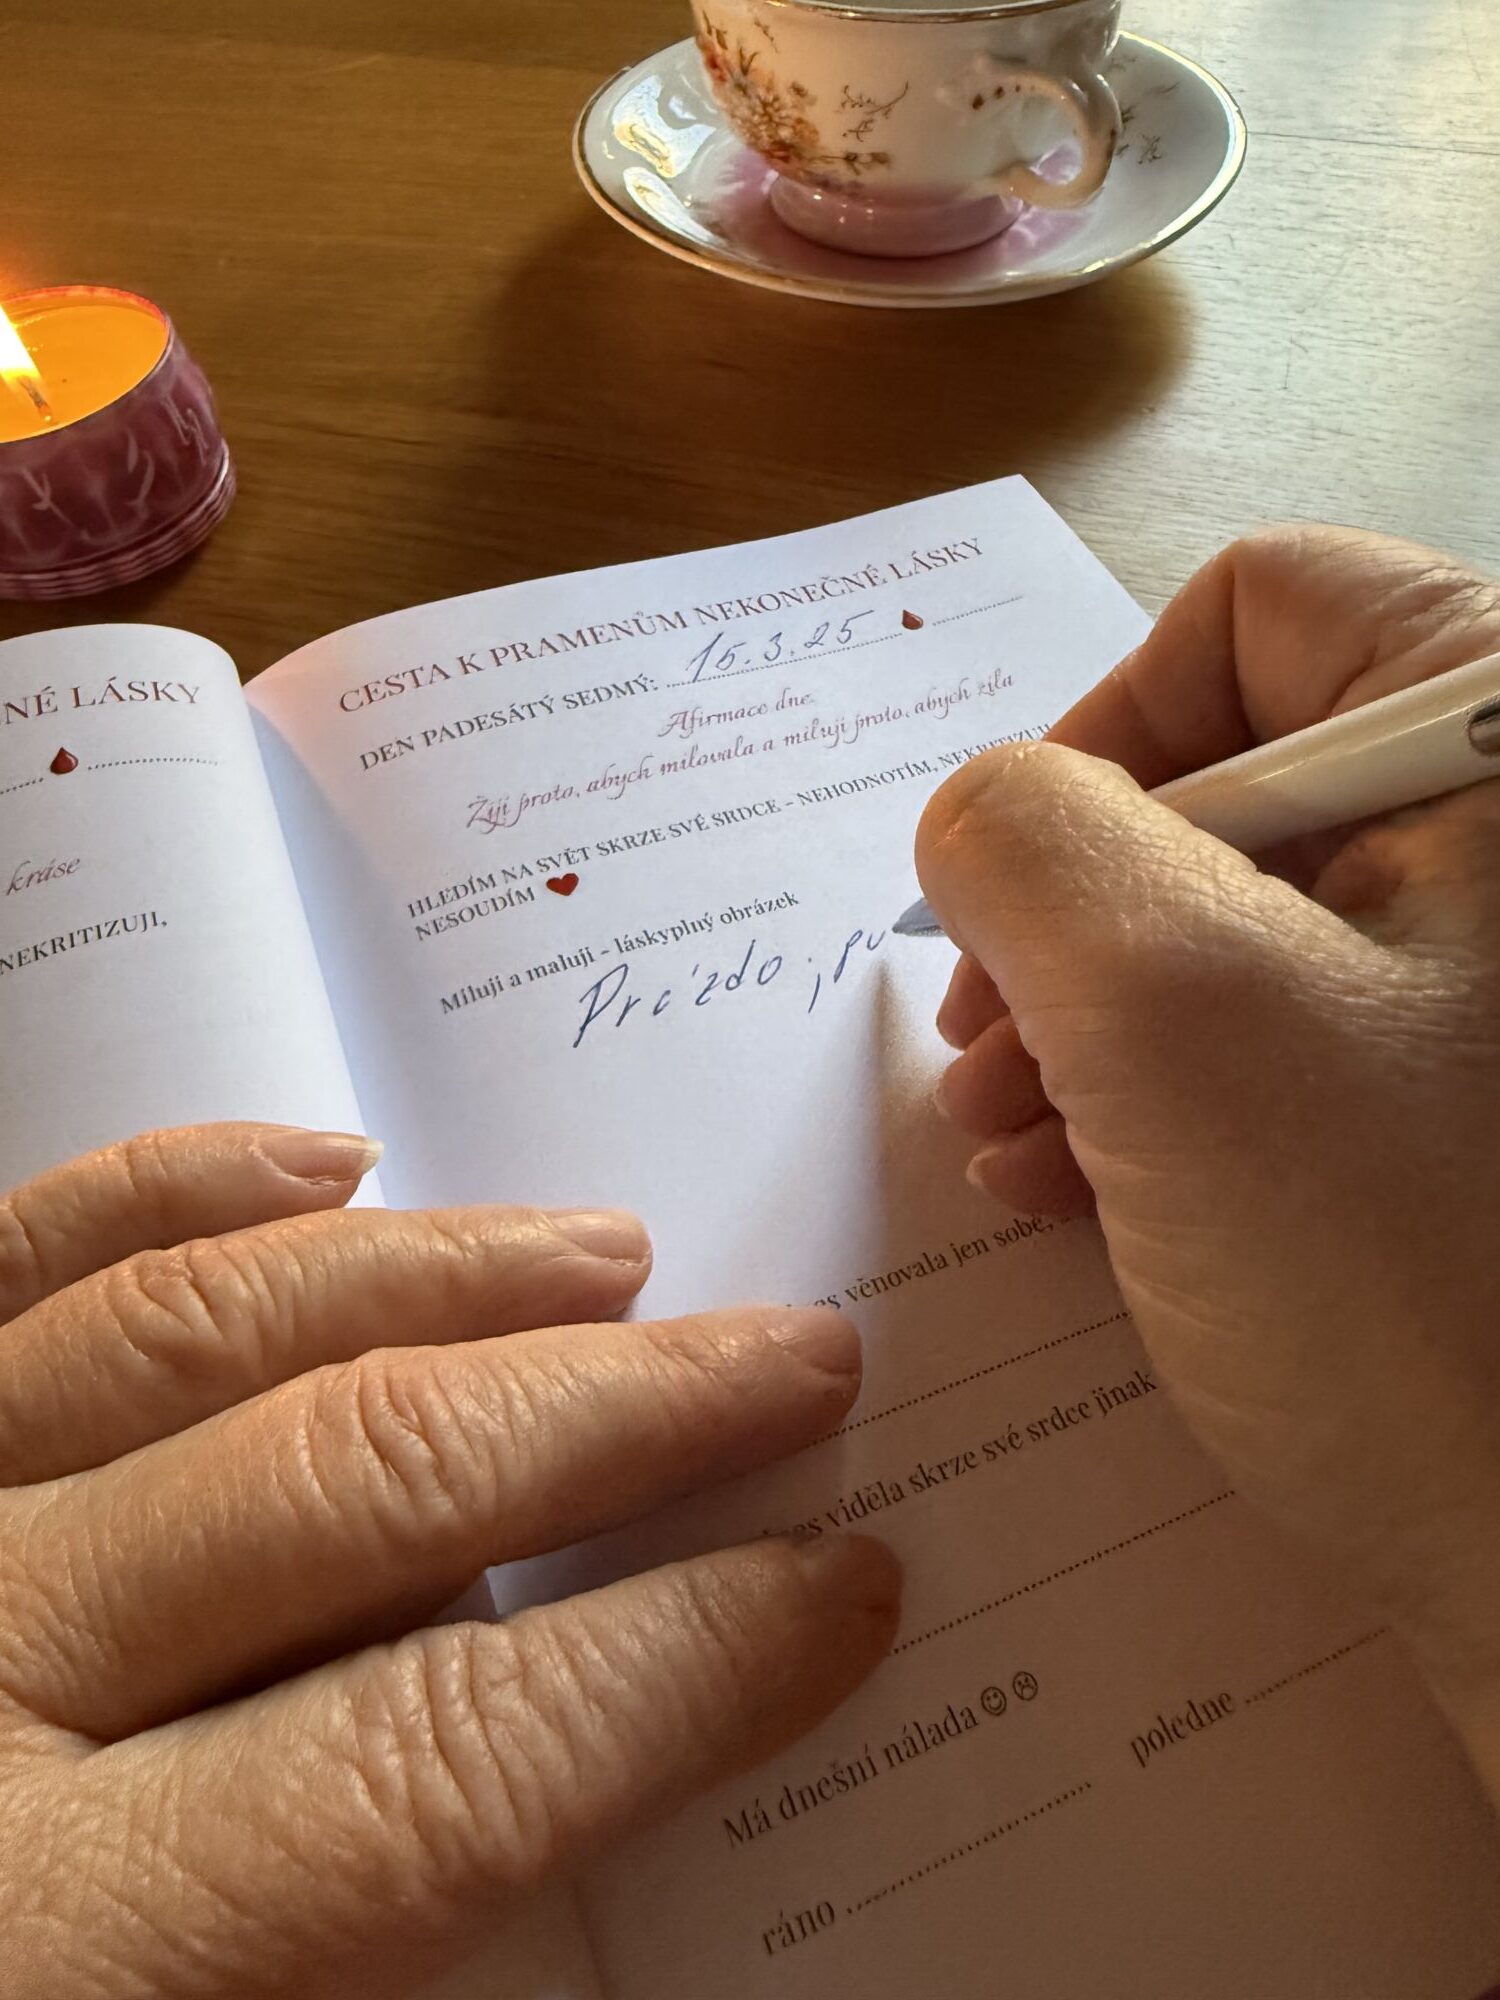 NÉ LÁSKY
kráse
NEKRITIZUJI,
CESTA K PRAMENŮM NEKONEČNÉ LÁSKY
DEN PADESÁTÝ SEDMÝ: 15.3.25
Afirmace dne:
Žiji proto, abych milovala a miluji proto, abych žila
HLEDÍM NA SVĚT SKRZE SVÉ SRDCE - NEHODNOTÍM, NEKRITIZUJI
NESOUDÍM
Miluji a maluji - láskyplný obrázek
Prázdo, pu
věnovala jen sobě,
viděla skrze své srdce jinak
Má dnešní nálada ☺ ☹
ráno poledne